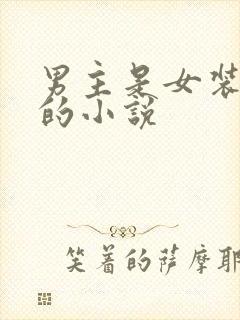 男主是女装
的小说
笑着的萨摩耶